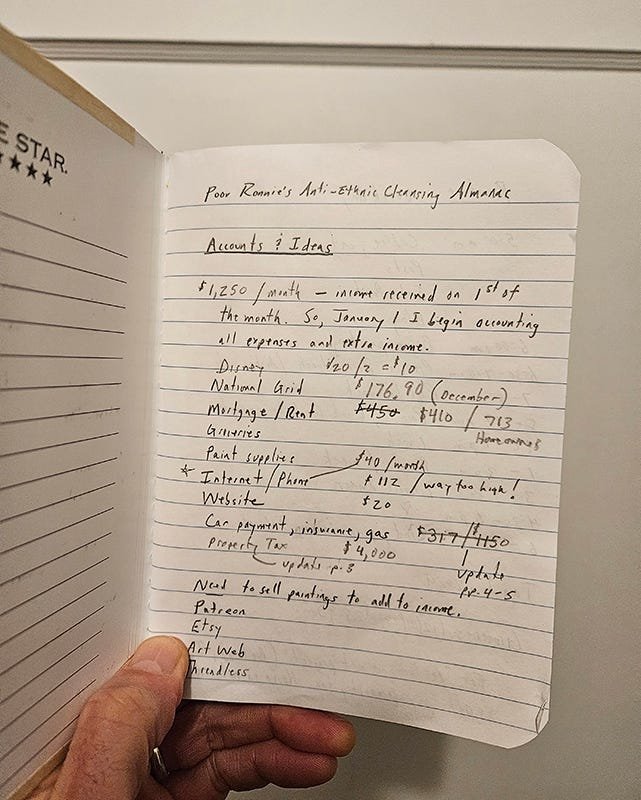 E STAR.
★★★★
Poor Ronnie's Anti-Ethnic Cleansing Almanac
Accounts & Ideas
$1,250 / month – income received on 1st of
the month. So, January 1 I begin accounting
all expenses and extra income.
Disney $20/2 = $10
National Grid $176.90 (December)
Mortgage / Rent $450 $410 / 713
Homeowners
Groceries
Paint supplies $40 /month
* Internet / Phone $112 / way too high!
Website $20
Car payment, insurance, gas $317/$1150
Property Tax $4,000
update p. 3
update
pp. 4-5
Need to sell paintings to add to income.
Patreon
Etsy
Art Web
Threadless